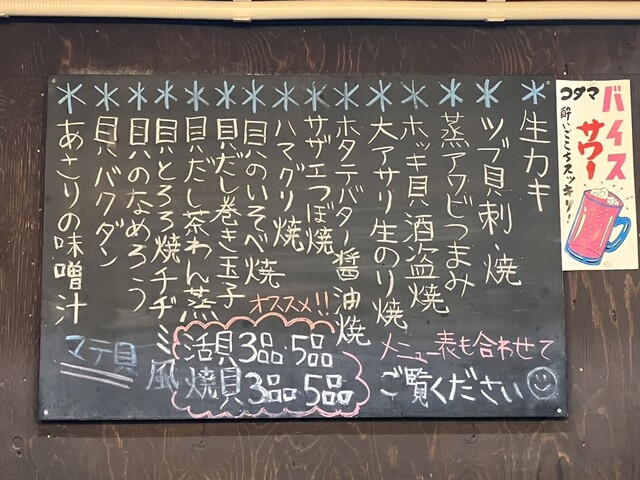 生カキ
ツブ貝刺・焼
蒸アワビつまみ
ホッキ貝酒盗焼
大アサリ生のり焼
ホタテバター醤油焼
サザエつぼ焼
ハマグリ焼
貝のいそべ焼
貝だし巻き玉子
貝だし茶わん蒸
貝とろろ焼チヂミ風
貝のなめろう
貝バクダン
あさりの味噌汁
オススメ!!
活貝3品・5品
焼貝3品・5品
マテ貝
メニュー表も合わせて
ご覧ください
コダマ
バイス
サワー
酔いごこちスッキリ!